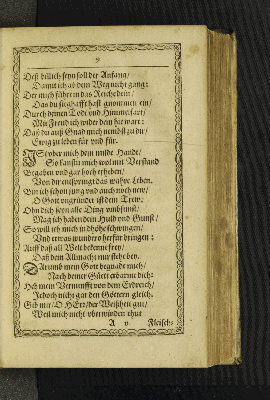 9
Deß billich seyn soll der Anfang/
Damit ich ab dem Weg nicht gang:
Der mich führt in das Reiche dein/
Das du sieghafft hast gnommen ein/
Durch deinen Todt und Himmelfart/
Mit Frewd ich wider dein hie wart:
Daß du auß Gnad mich nembst zu dir/
Ewig zu leben für und für.
IST uber mich dein milde Handt/
So kanstu mich wol mit Verstand
Begaben und gar hoch erheben/
Von dir entspringt das wahre Leben.
Bin ich schon jung und auch noch new/
O Gott ungründet ist dein Trew/
Ohn dich seyn alle Ding umbsunst/
Mag ich haben dein Huld und Gunst/
So will ich mich in dhöhe schwingen/
Und etwas wunders herfür bringen:
Auff daß all Welt bekenne frey/
Daß dein Allmacht mir stehe bey.
Darumb mein Gott begnade mich/
Nach deiner Güte erbarme dich:
Heb mein Vernunfft von dem Erdreich/
Jedoch nicht gar den Göttern gleich.
Gib mir/ O HErr/ der Weißheit gut/
Weil mich nicht uberwinden thut
A v Fleisch-